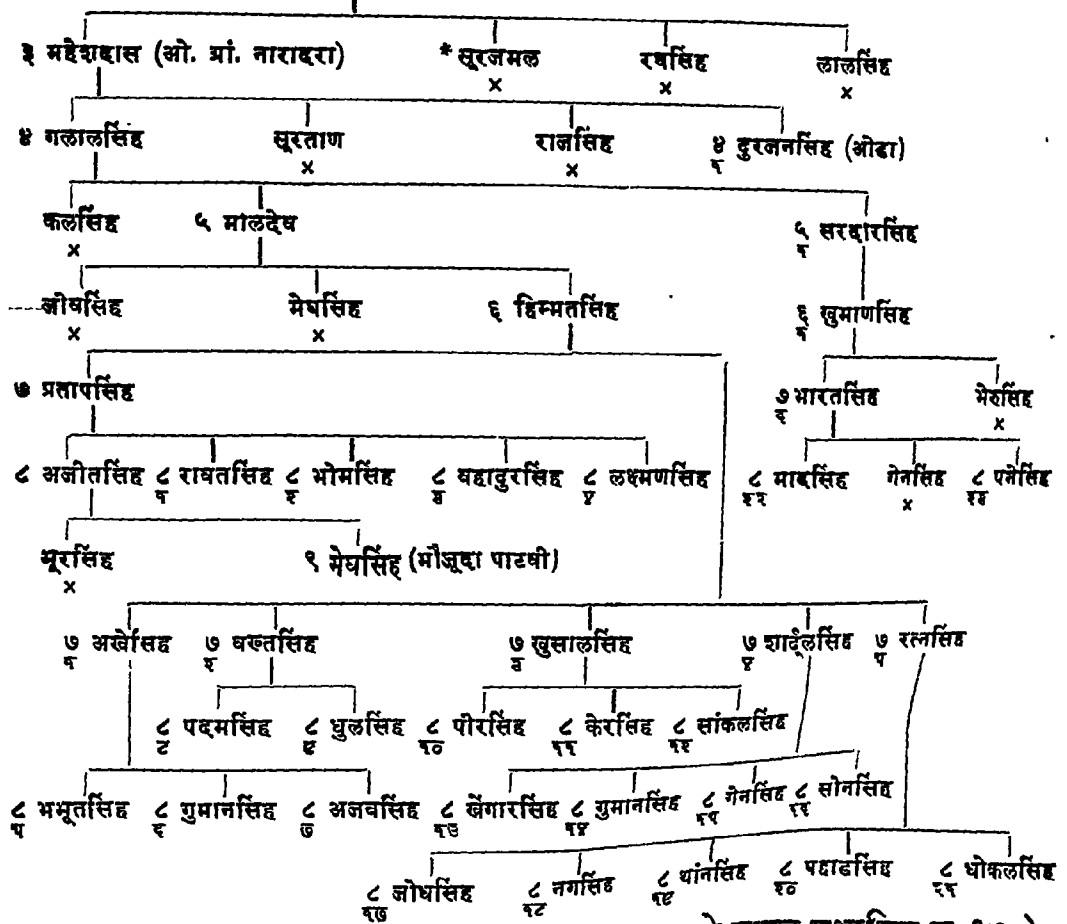 ३ महेशदास (ओ. प्रां. नारादरा) * सूरजमल रघसिंह लालसिंह
× × ×
४ गलालसिंह सूरताण राजसिंह ४/१ दुरजनसिंह (ओडा)
× ×
कलसिंह ५ मालदेव ५/१ सरदारसिंह
×
जोधसिंह मेघसिंह ६ हिम्मतसिंह ६/१ खुमाणसिंह
× ×
७ प्रतापसिंह ७/६ भारतसिंह भेरुसिंह
×
८ अजीतसिंह ८/१ रावतसिंह ८/२ भोमसिंह ८/३ बहादुरसिंह ८/४ लक्ष्मणसिंह ८/२२ मादसिंह गेनसिंह ८/२३ पनेसिंह
×
भूरसिंह ९ मेघसिंह (मौजूदा पाटवी)
×
७/१ अखेसिंह ७/२ वख्तसिंह ७/३ खुसालसिंह ७/४ शार्दूलसिंह ७/५ रत्नसिंह
८/८ पदमसिंह ८/९ धुलसिंह ८/१० पीरसिंह ८/११ केरसिंह ८/१२ सांकलसिंह
८/५ भभूतसिंह ८/६ गुमानसिंह ८/७ अजवसिंह ८/१३ खेंगारसिंह ८/१४ गुमानसिंह ८/१५ गेनसिंह ८/१६ सोनसिंह
८/१७ जोधसिंह ८/१८ नगसिंह ८/१९ थांनसिंह ८/२० पहाडसिंह ८/२१ धोकलसिंह